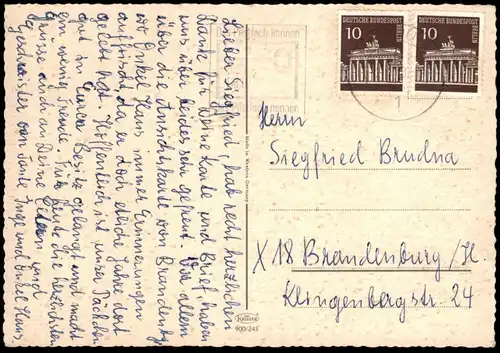 Lieber Siegfried, hab recht herzlichen
Dank für Deine Karte und Brief, haben
uns über beides sehr gefreut. Vor allem
über die Ansichtskarte von Brandenbg.
wo Onkel Hans immer Erinnerungen
auffrischt, da er doch etliche Jahre dort
gelebt hat. Hoffentlich ist unser Päckchen
gut in Euren Besitz gelangt und macht
ein wenig Freude. Für heute die herzlichsten
Grüsse auch an Deine Eltern und
Geschwister von Tante Inge und Onkel Hans
10 DEUTSCHE BUNDESPOST BERLIN
10 DEUTSCHE BUNDESPOST BERLIN
1
Made in Western Germany
Krüger
900/245
Herrn
Siegfried Brudna
X 18 Brandenburg/H.
Klingenbergstr. 24